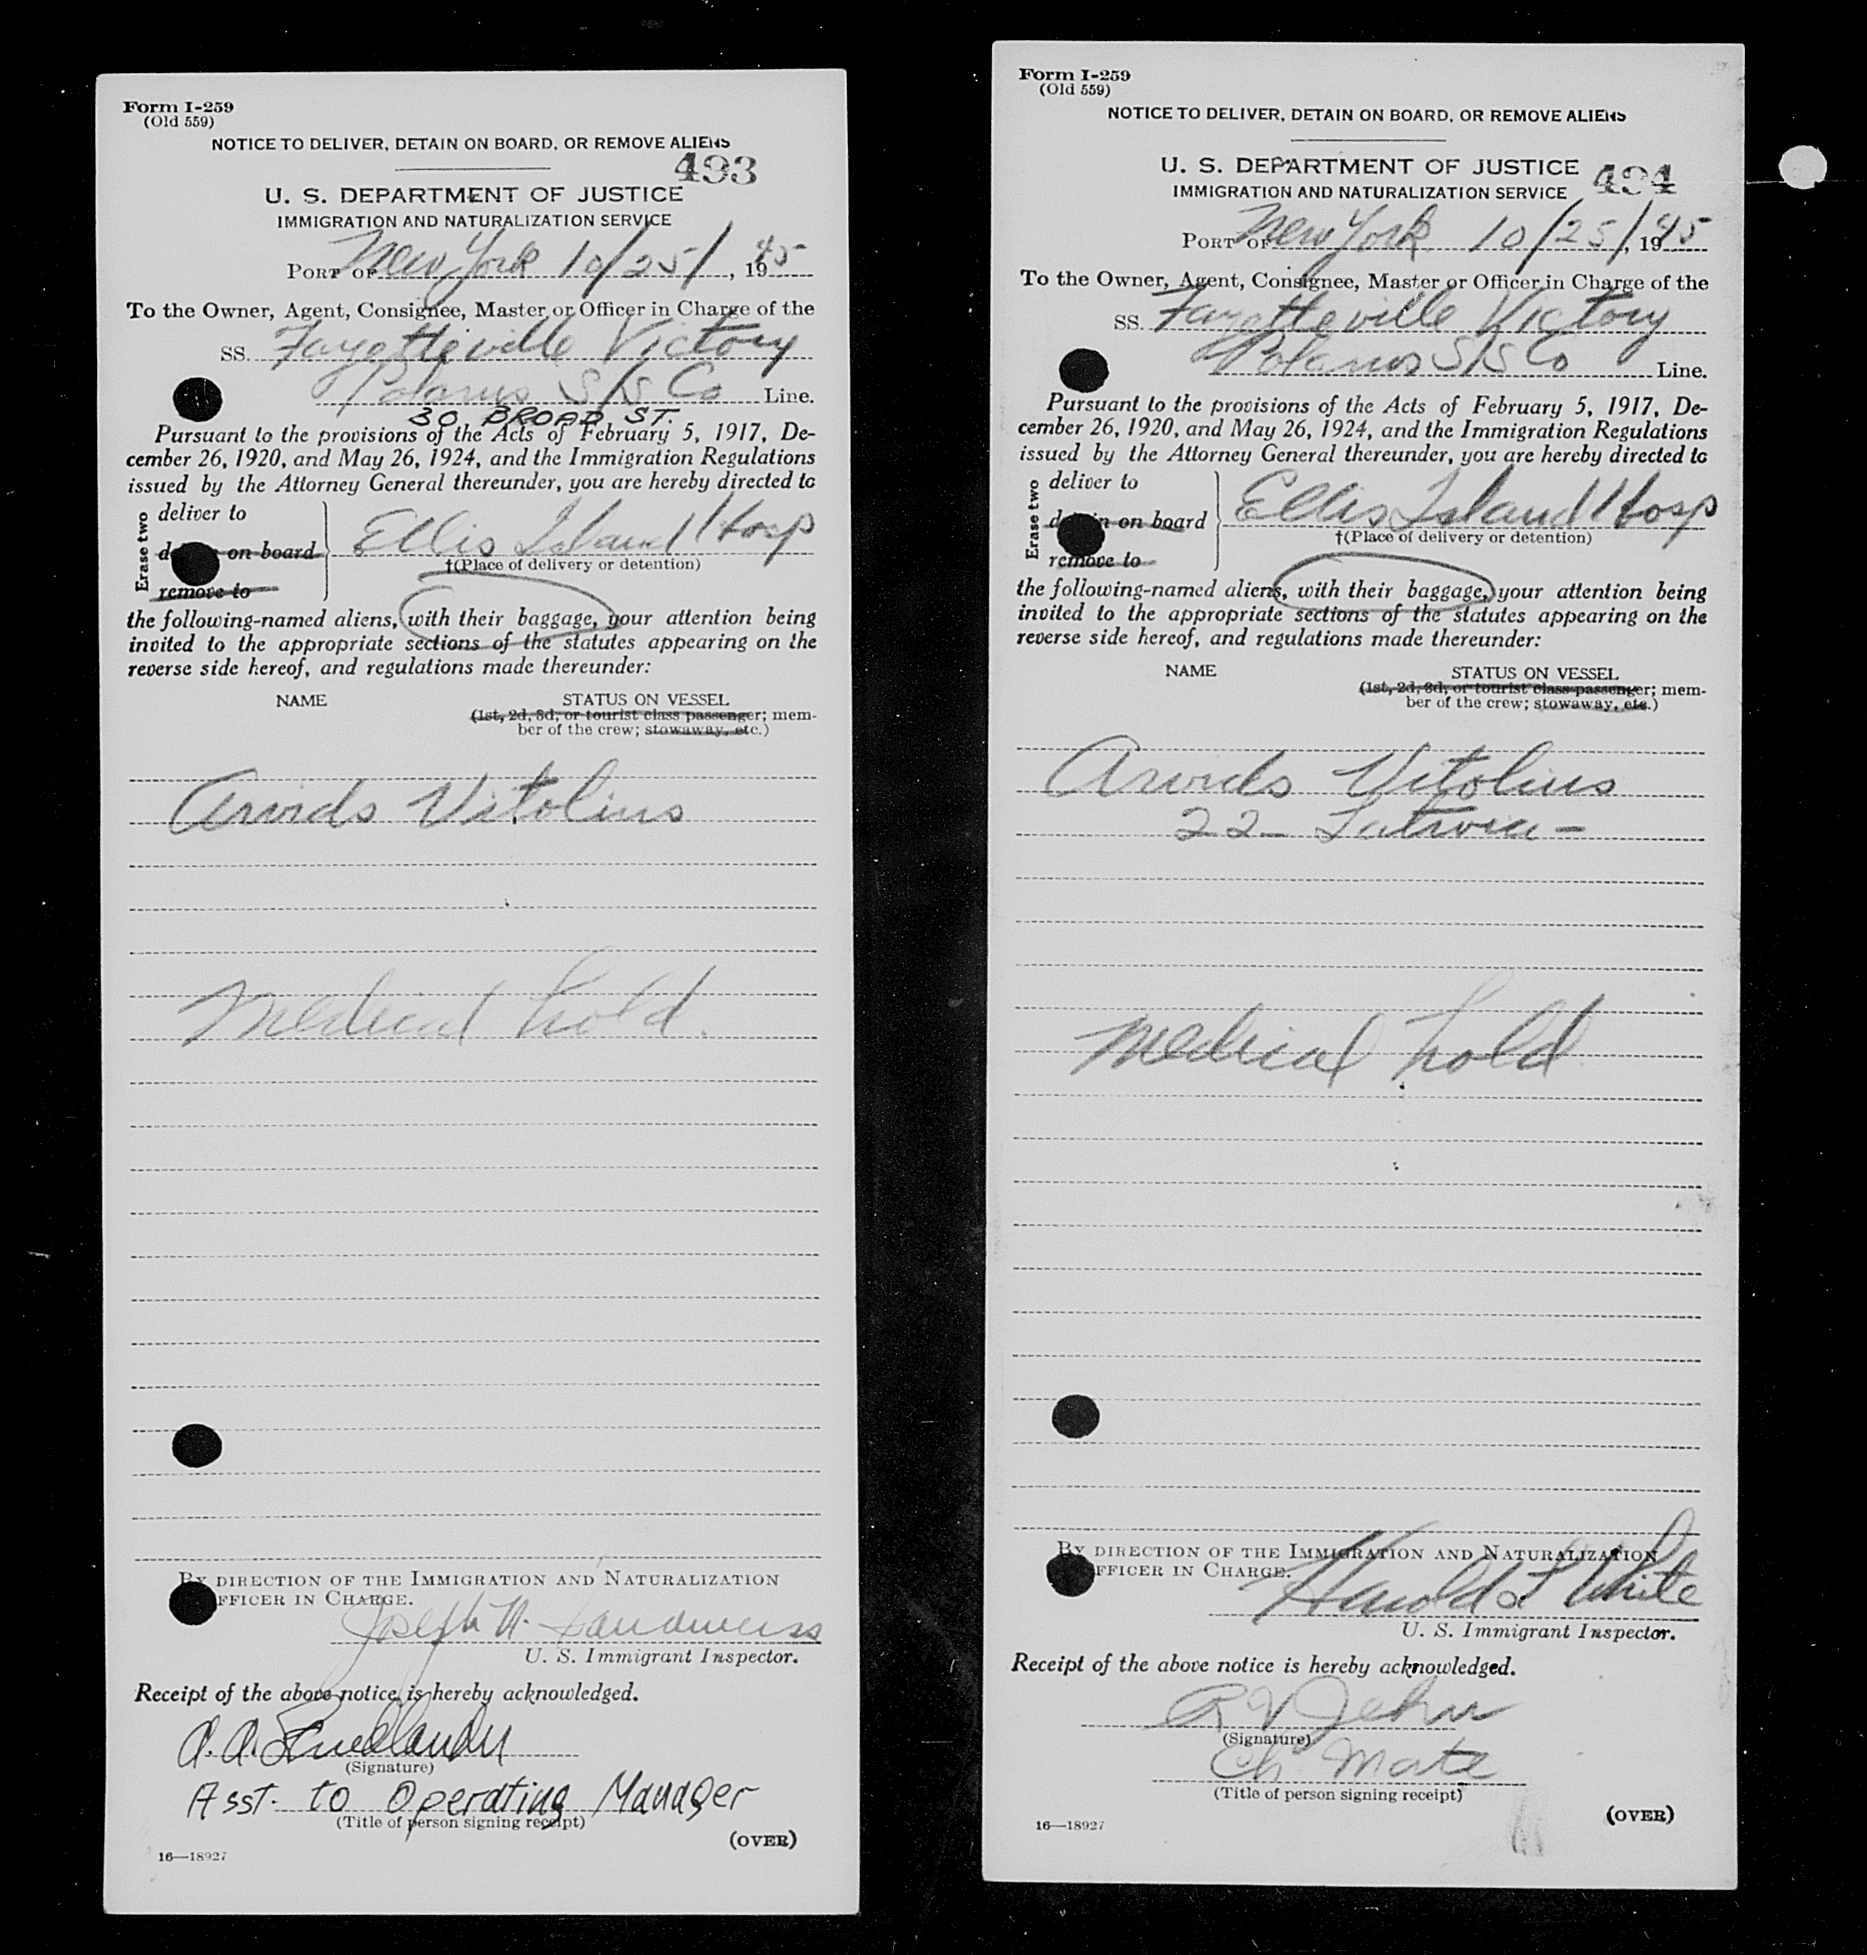 Form I-259
(Old 559)
NOTICE TO DELIVER, DETAIN ON BOARD, OR REMOVE ALIENS
493
U. S. DEPARTMENT OF JUSTICE
IMMIGRATION AND NATURALIZATION SERVICE
PORT OF New York 10/25/, 1945
To the Owner, Agent, Consignee, Master or Officer in Charge of the
SS. Fayetteville Victory
Polarus S/S Co Line.
30 BROAD ST.
Pursuant to the provisions of the Acts of February 5, 1917, De-
cember 26, 1920, and May 26, 1924, and the Immigration Regulations
issued by the Attorney General thereunder, you are hereby directed to
Erase two
deliver to
on board
remove to
Ellis Island Hosp
†(Place of delivery or detention)
the following-named aliens, with their baggage, your attention being
invited to the appropriate sections of the statutes appearing on the
reverse side hereof, and regulations made thereunder:
NAME STATUS ON VESSEL
(1st, 2d, 3d, or tourist class passenger; mem-
ber of the crew; stowaway, etc.)
Arvids Vitolins
Medical hold.
BY DIRECTION OF THE IMMIGRATION AND NATURALIZATION
FFICER IN CHARGE.
Joseph N. Landweiss
U. S. Immigrant Inspector.
Receipt of the above notice is hereby acknowledged.
A. A. Friedlander
(Signature)
Asst. to Operating Manager
(Title of person signing receipt)
(OVER)
16—18927
Form I-259
(Old 559)
NOTICE TO DELIVER, DETAIN ON BOARD, OR REMOVE ALIENS
U. S. DEPARTMENT OF JUSTICE 494
IMMIGRATION AND NATURALIZATION SERVICE
PORT OF New York 10/25/, 1945
To the Owner, Agent, Consignee, Master or Officer in Charge of the
SS. Fayetteville Victory
Polarus S/S Co Line.
Pursuant to the provisions of the Acts of February 5, 1917, De-
cember 26, 1920, and May 26, 1924, and the Immigration Regulations
issued by the Attorney General thereunder, you are hereby directed to
Erase two
deliver to
on board
remove to
Ellis Island Hosp
†(Place of delivery or detention)
the following-named aliens, with their baggage, your attention being
invited to the appropriate sections of the statutes appearing on the
reverse side hereof, and regulations made thereunder:
NAME STATUS ON VESSEL
(1st, 2d, 3d, or tourist class passenger; mem-
ber of the crew; stowaway, etc.)
Arvids Vitolins
22 - Latvia -
Medical hold
BY DIRECTION OF THE IMMIGRATION AND NATURALIZATION
FFICER IN CHARGE.
Harold L White
U. S. Immigrant Inspector.
Receipt of the above notice is hereby acknowledged.
R V
(Signature)
Ch Mate
(Title of person signing receipt)
(OVER)
16—18927